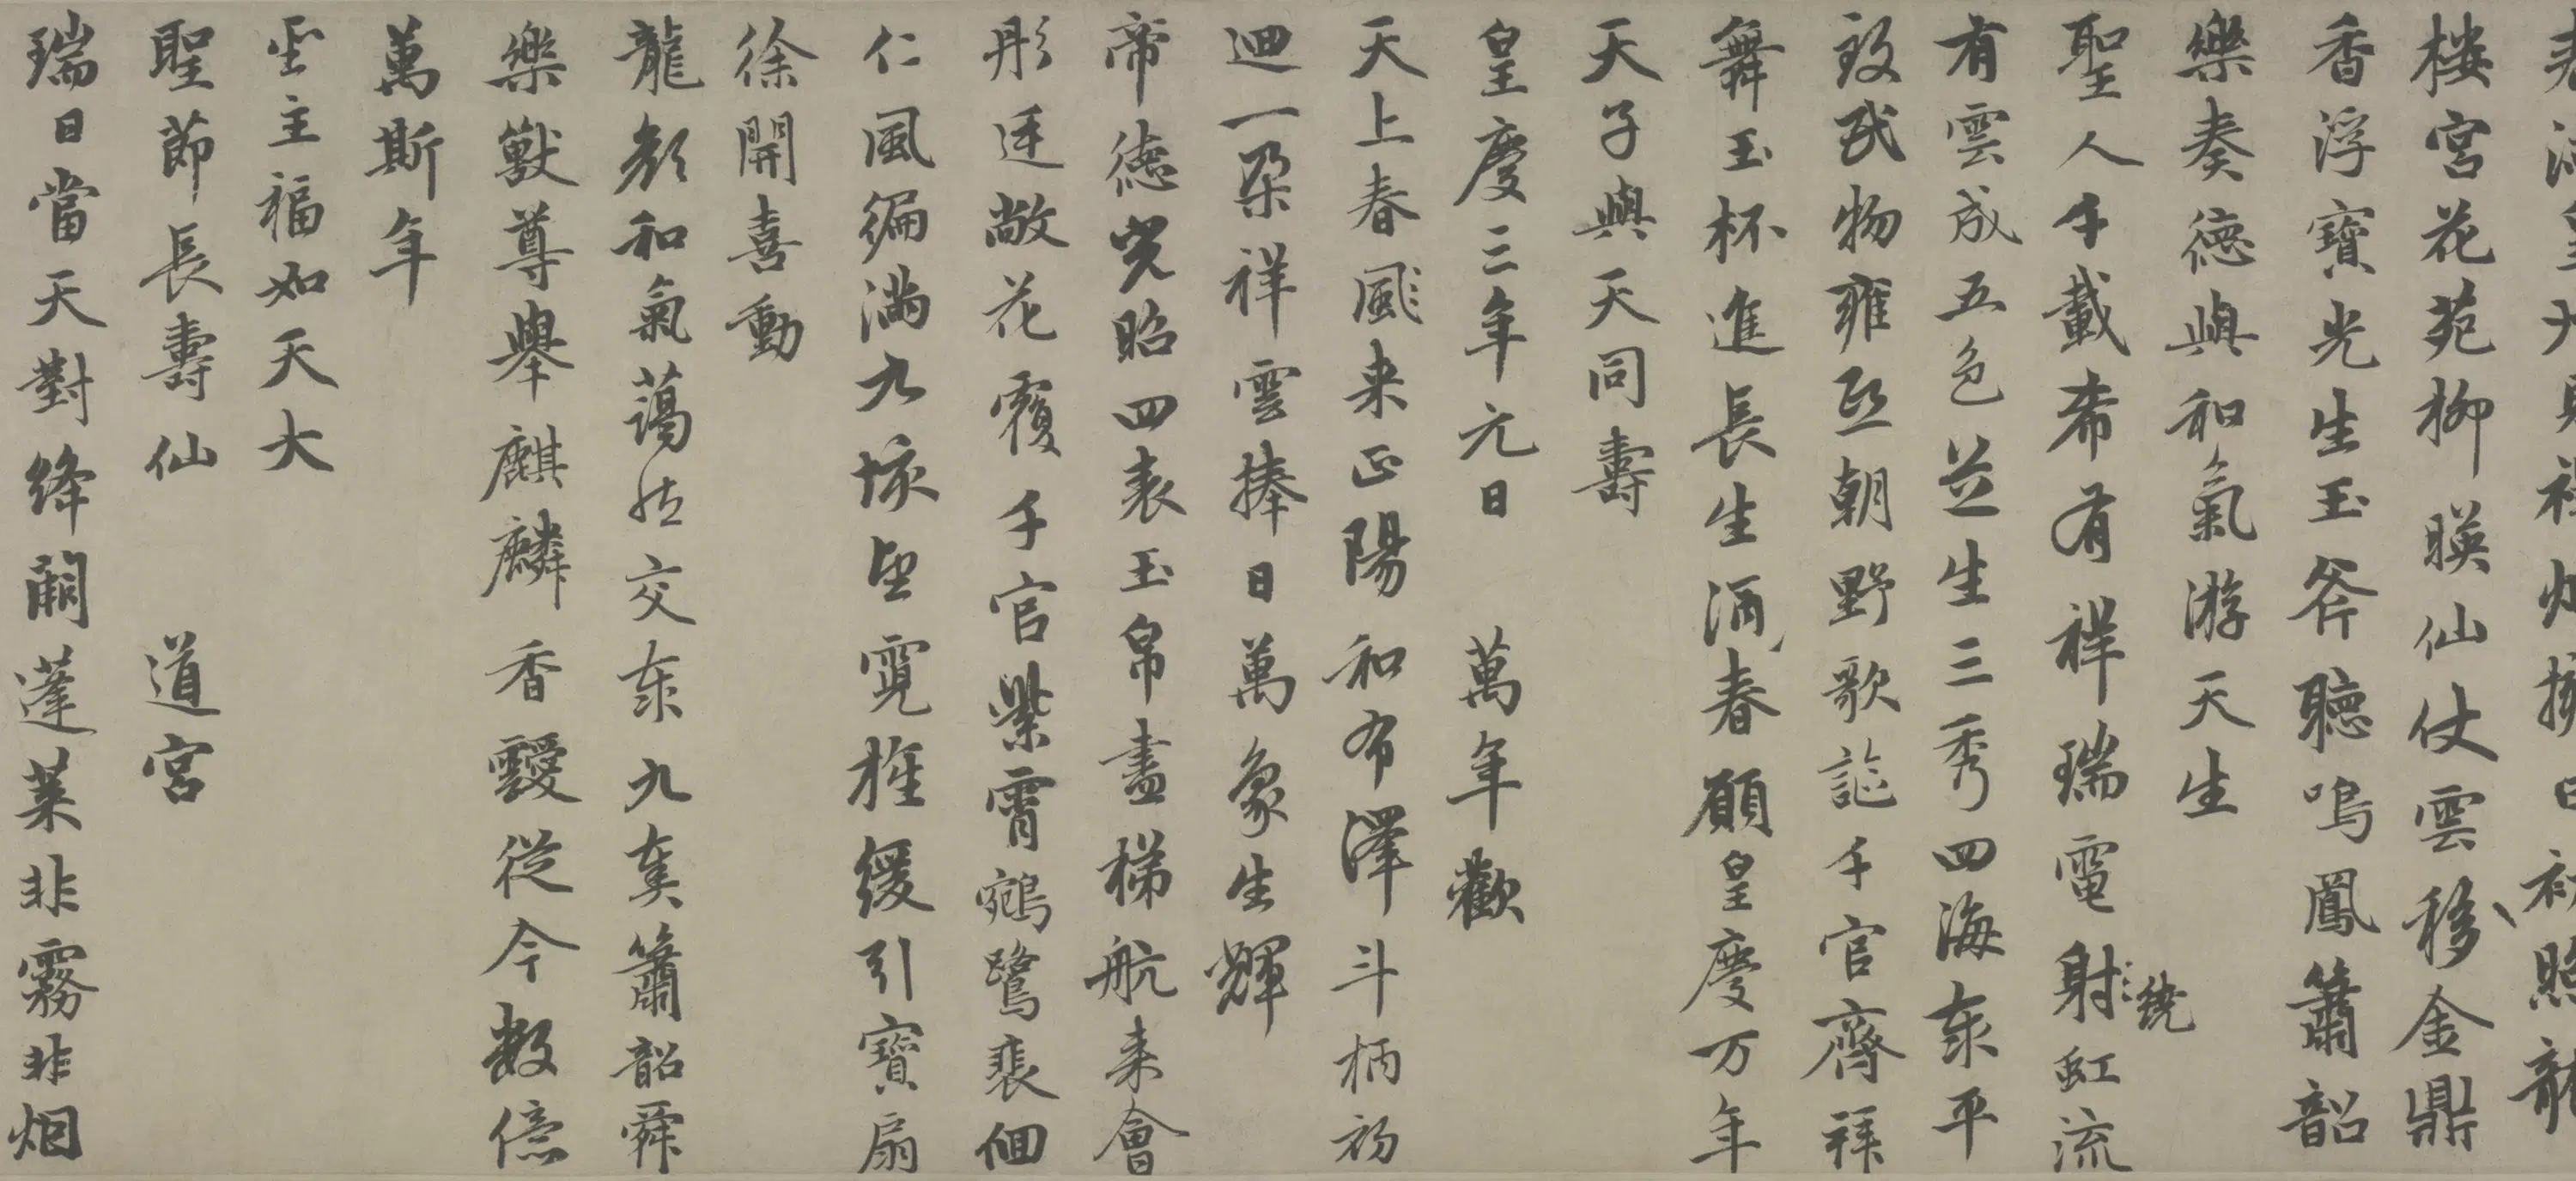 樓宮花苑柳暎仙仗雲移金鼎
香浮寶光生玉斧聴鳴鳳簫韶
樂奏德與和氣游天生
聖人千載希有祥瑞電射虹流
繞
有雲成五色並生三秀四海泰平
致民物雍熙朝野歌謳千官齊拜
舞玉杯進長生酒春願皇慶万年
天子與天同壽
皇慶三年元日 萬年歡
天上春風来正陽和布澤斗柄初
迴一朵祥雲捧日萬象生輝
帝德光昭四表玉帛盡梯航来會
彤廷敞花覆千官紫霄鵷鷺裴佪
仁風徧滿九垓望霓旌緩引寶扇
徐開喜動
龍顔和氣藹然交泰九奏簫韶舜
樂獸尊舉麒麟香靉從今數億
萬斯年
聖主福如天大
聖節長壽仙 道宮
瑞日當天對絳闕蓬莱非霧非烟